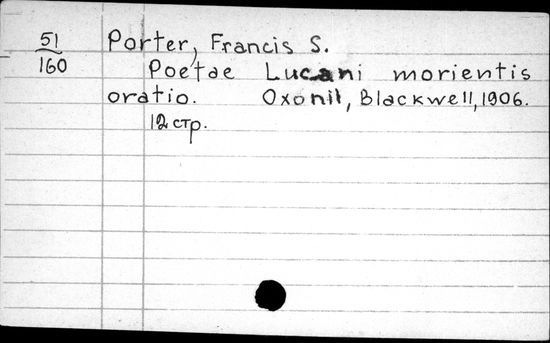 51
160
Porter, Francis S.
Poetae Lucani morientis
oratio. Oxonii, Blackwell, 1906.
12 стр.